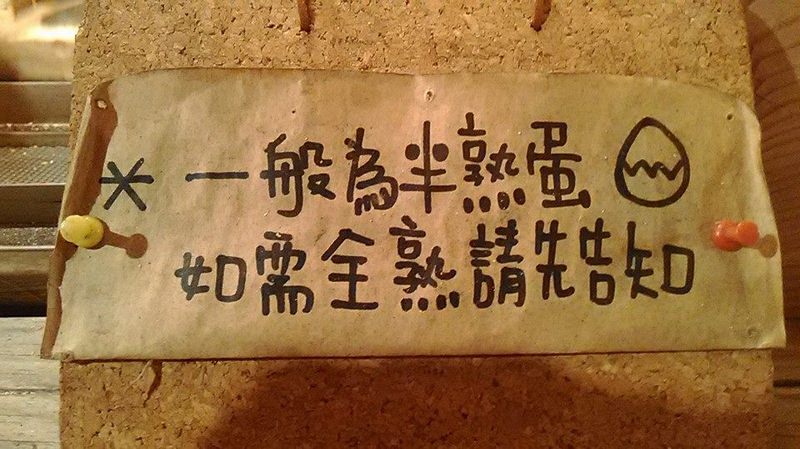 * 一般為半熟蛋
如需全熟請先告知